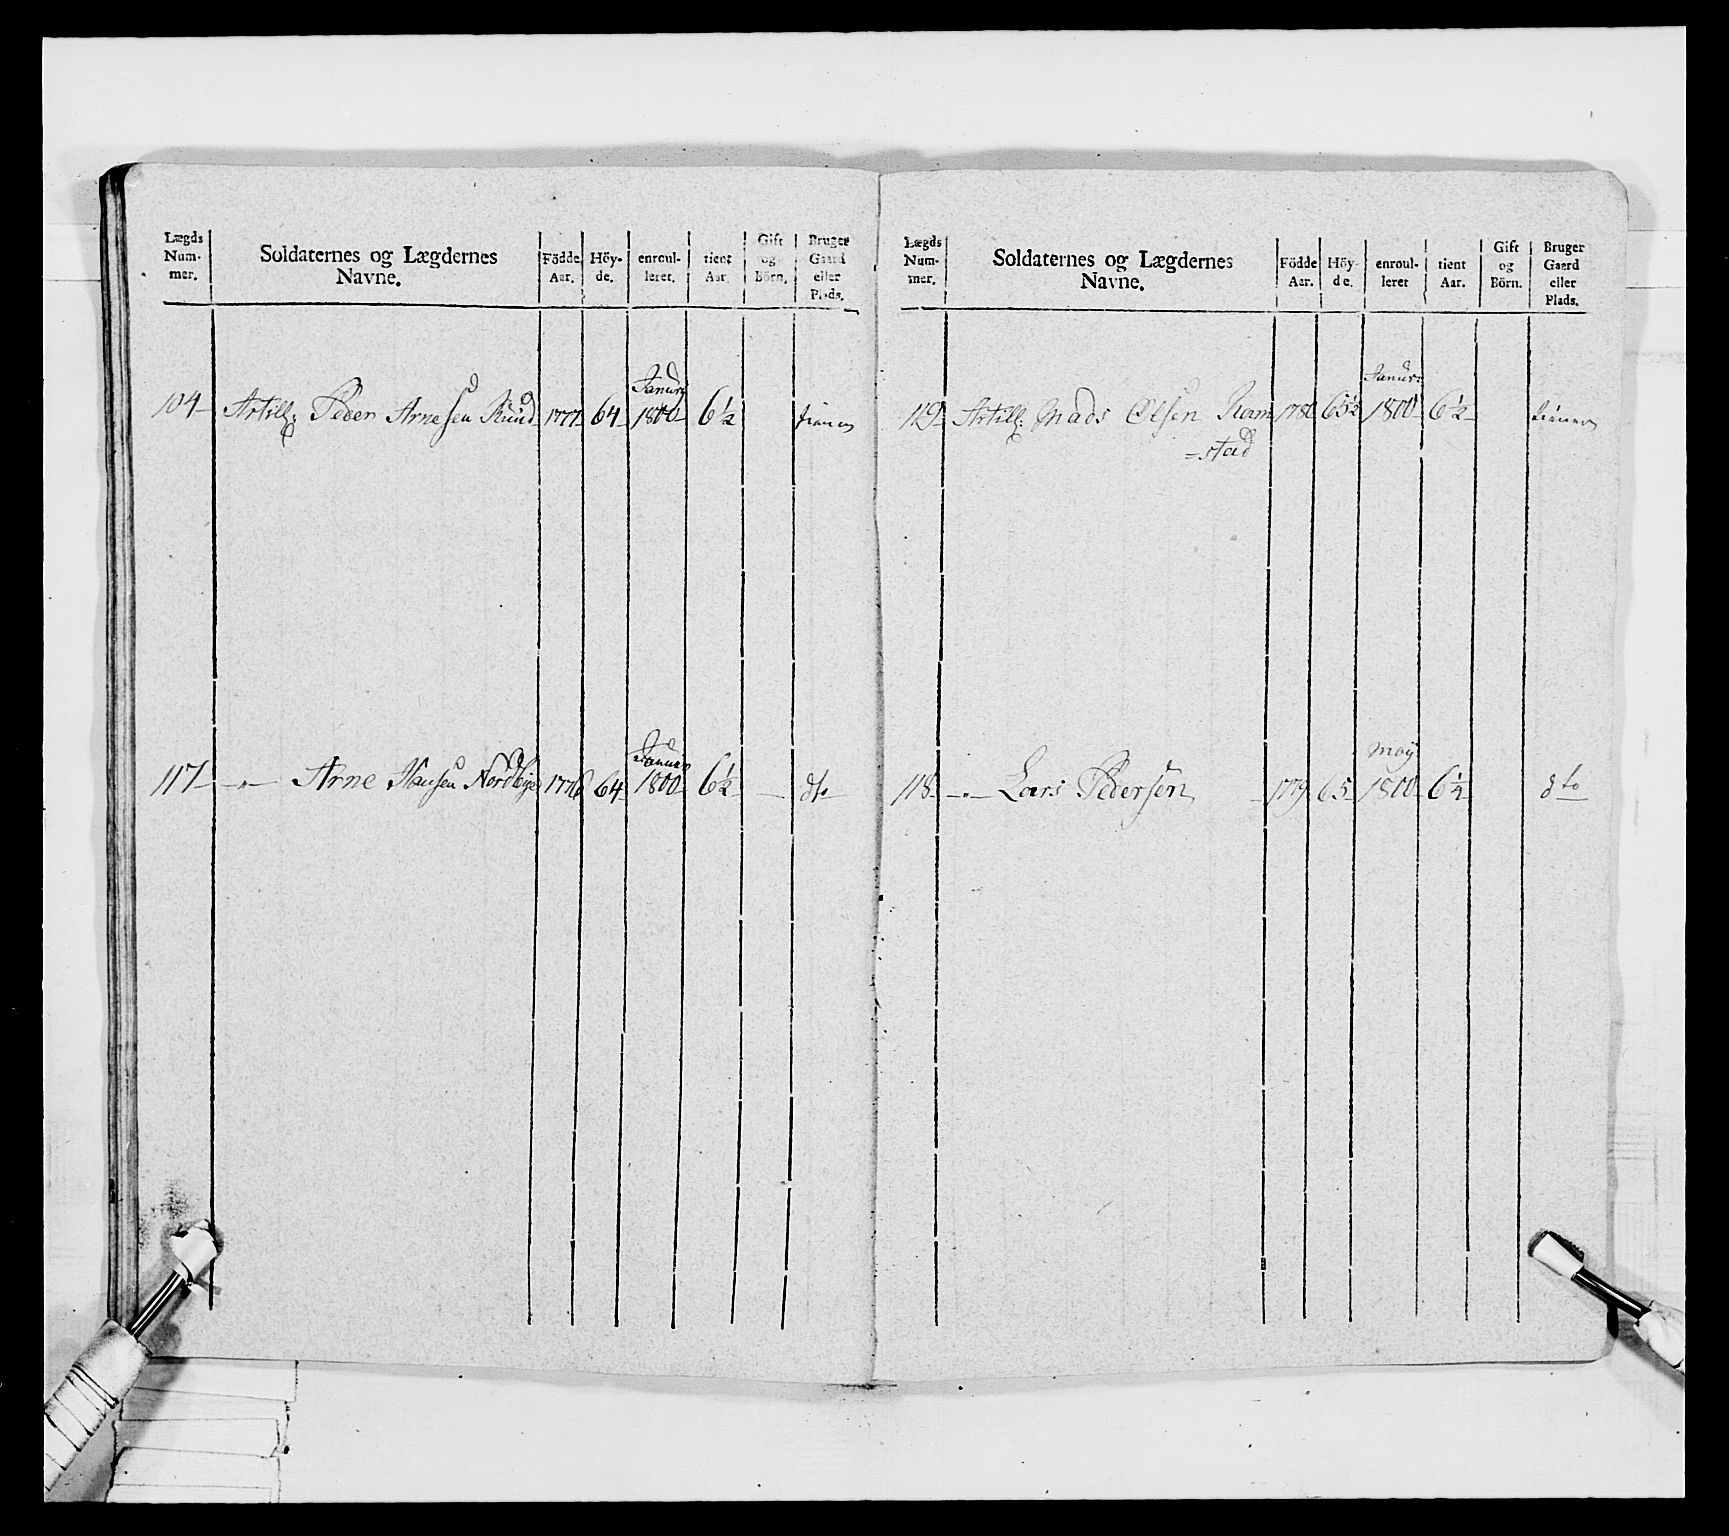 Lægds Num- mer. | Soldaternes og Lægdernes Navne. | Födde Aar. | Höy- de. | enroul- leret. | tient Aar. | Gift og Börn. | Bruger Gaard eller Plads.
Januarj
104- Artill: Peder Arnesen Ruud 1777 64- 1800- 6½ tiener
Januar
117- -"- Arne Hansen Nordbye 1776 64- 1800- 6½- - dto
Lægds Num- mer. | Soldaternes og Lægdernes Navne. | Födde Aar. | Höy- de. | enroul- leret | tient Aar. | Gift og Börn. | Bruger Gaard eller Plads.
Januar:
119- Artill: Mads Olsen Ram 1780 65½ 1800- 6½- tiener
=stad
May
118- -"- Lars Pedersen - 1779 65- 1800- 6¼ dto